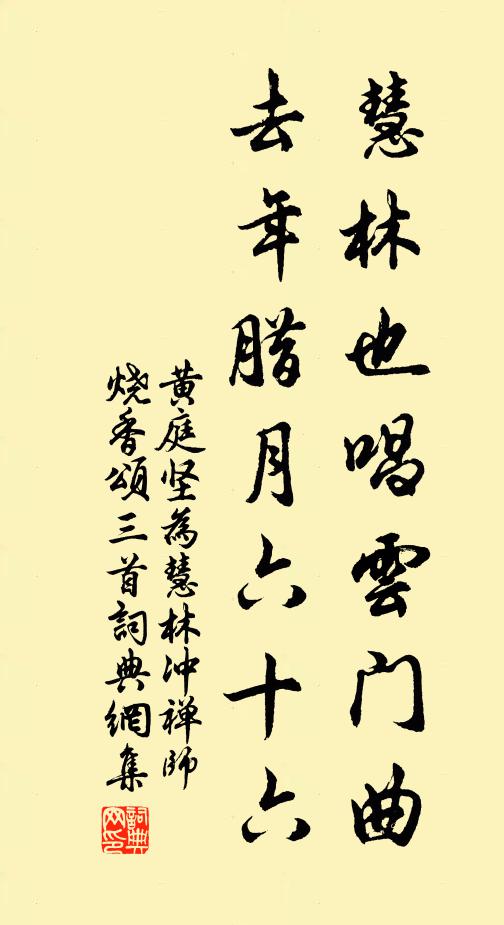 慧林也唱雲门曲
去年腊月六十六
黄庭坚為慧林沖禅師
烧香頌三首詞典網集
詞典
网印